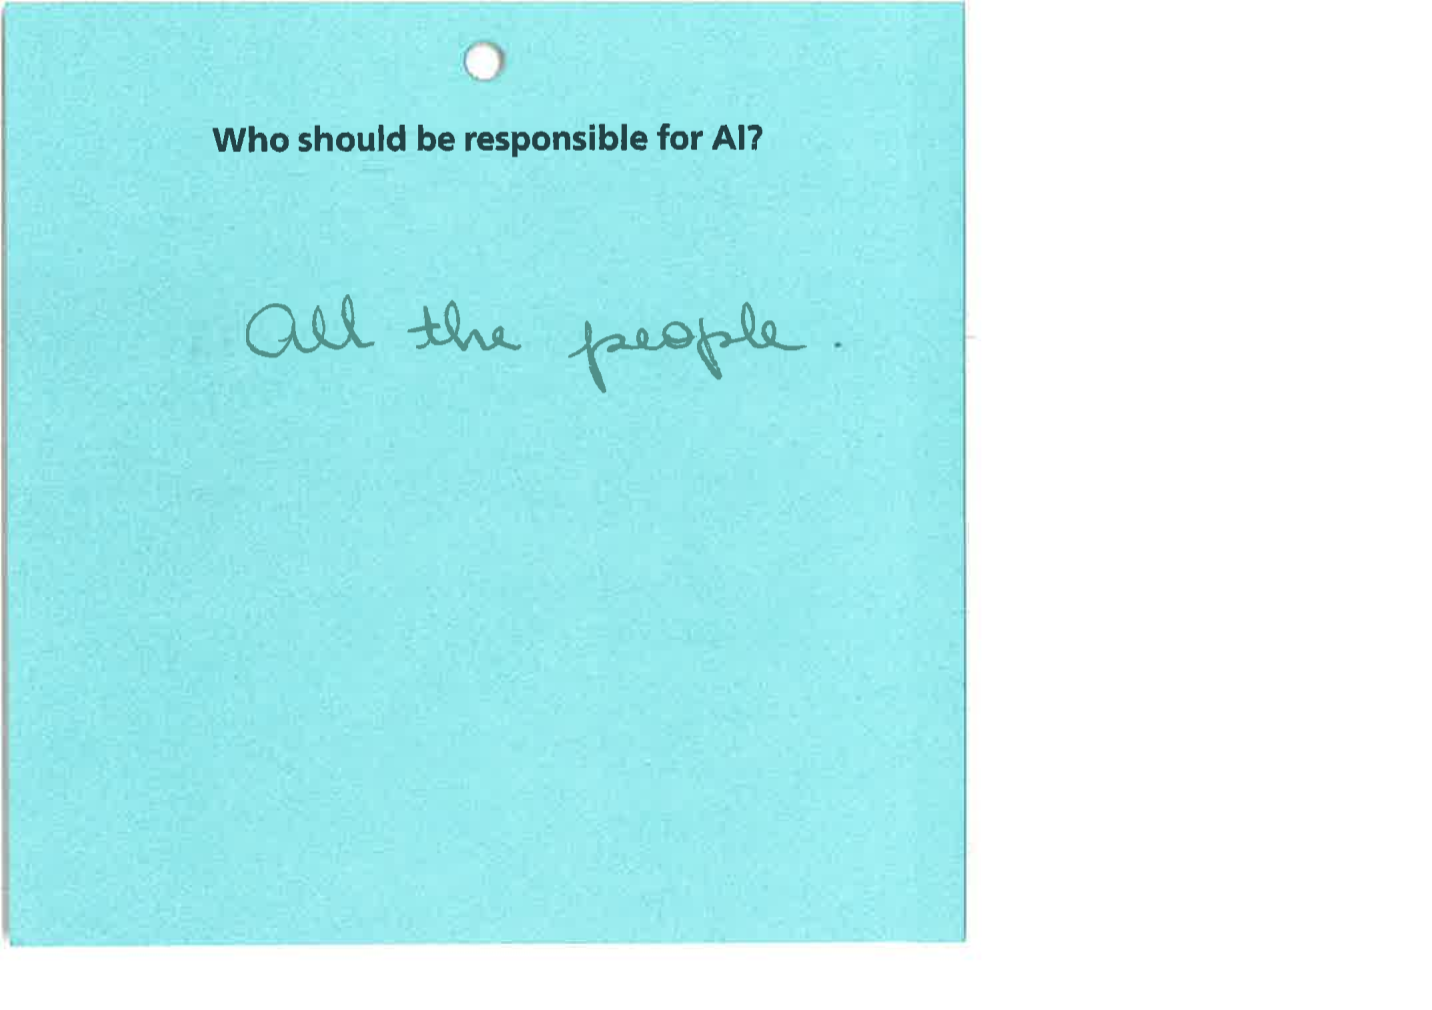 Who should be responsible for AI?
All the people.